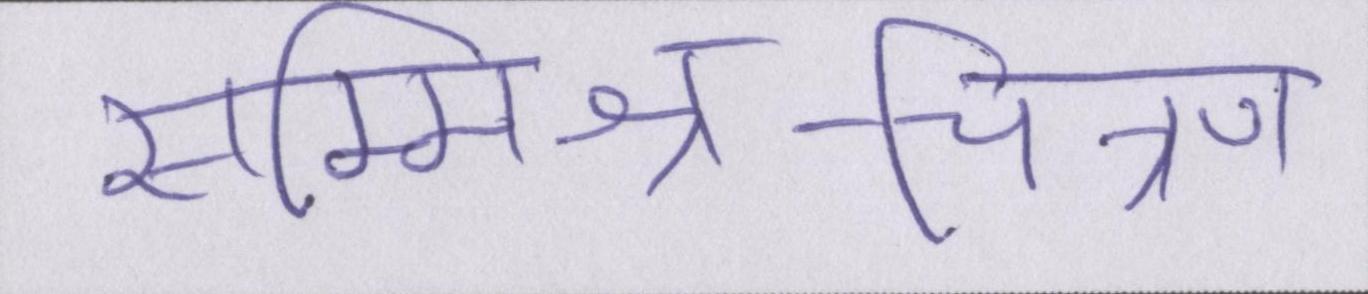 सम्मिश्र-चित्रण